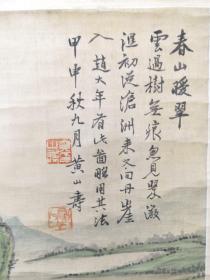 春山暖翠
雲過樹無痕忽見翠微
溼初從滄洲來又向丹崖
入 趙大年有此圖略用其法
甲申秋九月 黃山壽